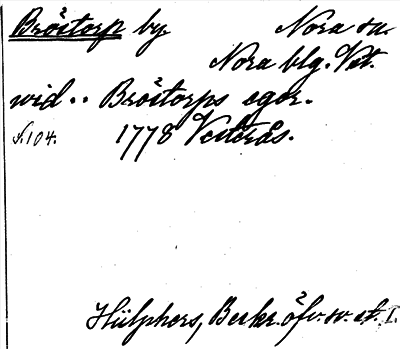 Bröstorp by Nora sn.
Nora blg. Vstm.
wid .. Bröstorps egor.
s. 104. 1778 Vesterås.
Hülphers, Beskr. öfv. sv. st. I.